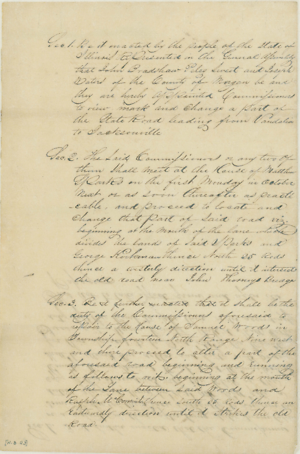 Sec. 1. Be it enacted by the people of the State of
Illinois Represented in the General Assembly
that John Bradshaw Riley Sweet and
of the County of Morgan be and
they are hereby appointed Commissioners
to view mark and Change a part of
the State Road leading from Vandalia
to Jacksonville
Sec. 2. The Said Commissioners or any two of
them Shall Meet at the House of
Parks on the first Monday in October
Next or as soon thereafter as practi-
cable, and proceed to locate and
Change that Part of Said road viz
beginning at the Mouth of the lane
divides the lands of Said Parks and
George thence North 25 Rods
thence a westerly direction until it intersects
the old road near John
Sec. 3. Be it further enacted that it shall be the
duty of the Commissioners aforesaid to
repair to the House of Samuel Woods in
Township fourteen North Range Nine west
and there proceed to alter a part of the
aforesaid road beginning and running
as follows to wit beginning at the mouth
of the Lane between Said Woods and
Joseph thence South 15 Rods thence an
Eastwardly direction until it Strikes the old
Road